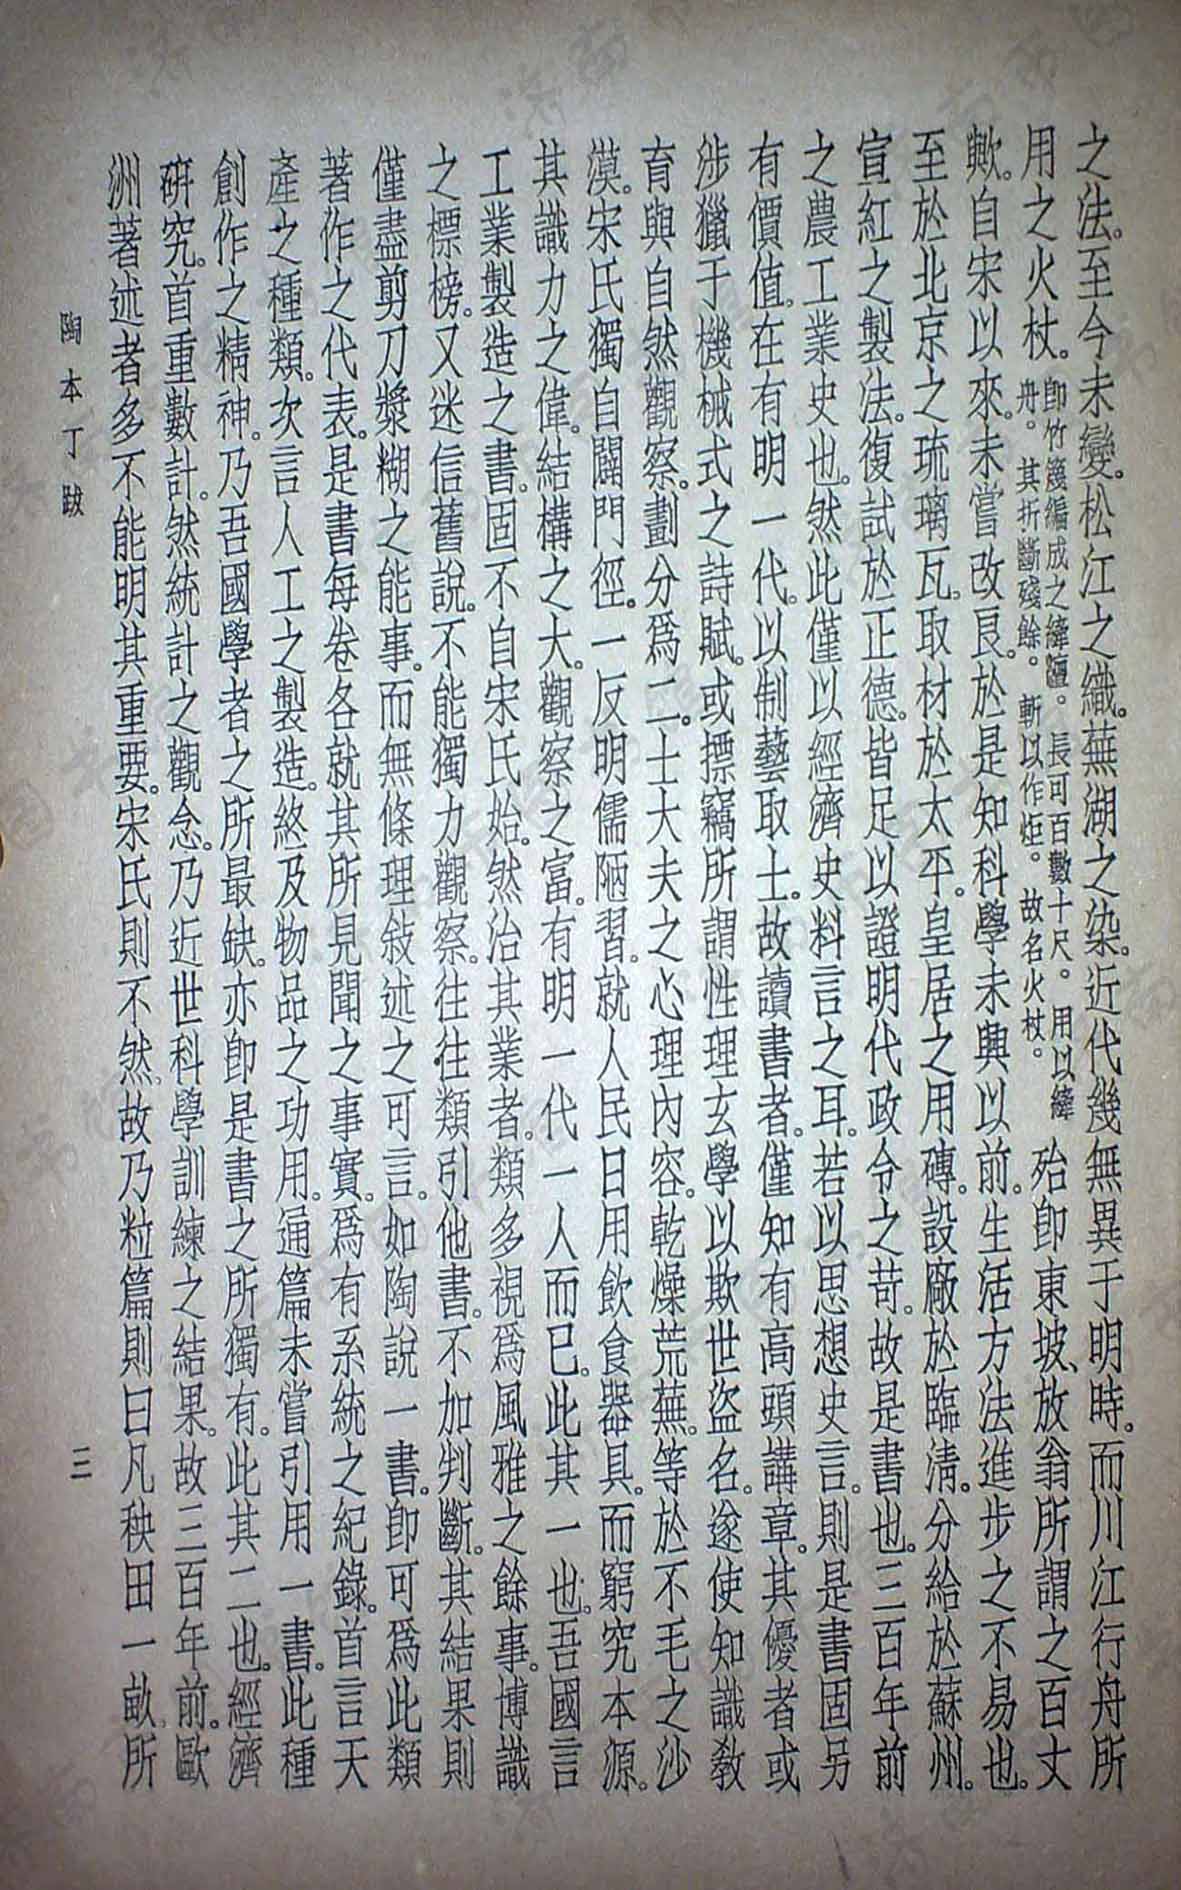 之法。至今未變。松江之織。蕪湖之染。近代幾無異于明時。而川江行舟所
用之火杖。卽竹篾編成之縴䌫。長可百數十尺。用以縴
舟。其折斷殘餘。斬以作炬。故名火杖。
殆卽東坡、放翁所謂之百丈
歟。自宋以來。未嘗改良。於是知科學未興以前。生活方法進步之不易也。
至於北京之琉璃瓦。取材於太平。皇居之用磚。設廠於臨清。分給於蘇州。
宣紅之製法。復試於正德。皆足以證明代政令之苛。故是書也。三百年前
之農工業史也。然此僅以經濟史料言之耳。若以思想史言。則是書固另
有價值。在有明一代。以制藝取士。故讀書者。僅知有高頭講章。其優者或
涉獵于機械式之詩賦。或摽竊所謂性理玄學以欺世盜名。遂使知識敎
育與自然觀察。劃分爲二。士大夫之心理內容。乾燥荒蕪。等於不毛之沙
漠。宋氏獨自闢門徑。一反明儒陋習。就人民日用飲食器具。而窮究本源。
其識力之偉。結構之大。觀察之富。有明一代一人而已。此其一也。吾國言
工業製造之書。固不自宋氏始。然治其業者。類多視爲風雅之餘事。博識
之標榜。又迷信舊說。不能獨力觀察。往往類引他書。不加判斷。其結果則
僅盡剪刀漿糊之能事。而無條理敍述之可言。如陶說一書。卽可爲此類
著作之代表。是書每卷各就其所見聞之事實。爲有系統之紀錄。首言天
產之種類。次言人工之製造。終及物品之功用。通篇未嘗引用一書。此種
創作之精神。乃吾國學者之所最缺。亦卽是書之所獨有。此其二也。經濟
硏究。首重數計。然統計之觀念。乃近世科學訓練之結果。故三百年前。歐
洲著述者多不能明其重要。宋氏則不然。故乃粒篇則曰凡秧田一畝。所
陶本丁跋
三